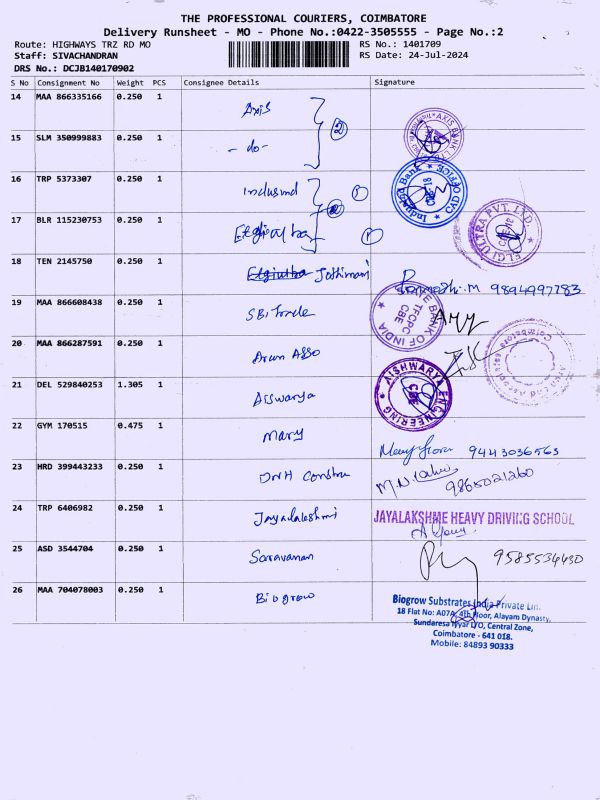 THE PROFESSIONAL COURIERS, COIMBATORE
Delivery Runsheet - MO - Phone No.:0422-3505555 - Page No.:2
Route: HIGHWAYS TRZ RD MO RS No.: 1401709
Staff: SIVACHANDRAN RS Date: 24-Jul-2024
DRS No.: DCJB140170902
S No Consignment No Weight PCS Consignee Details Signature
14 MAA 866335166 0.250 1 Axis
2
AXIS BANK
15 SLM 350999883 0.250 1 - do -
16 TRP 5373307 0.250 1 Indusind 1
17 BLR 115230753 0.250 1
ELGI ULTRA PVT. LTD.
18 TEN 2145750 0.250 1 Jothimani M 9894997283
19 MAA 866608438 0.250 1 SBi Trade
STATE BANK OF INDIA
TFCPC
CBE
20 MAA 866287591 0.250 1 Arun Asso
21 DEL 529840253 1.305 1 Aiswarya
AISHWARYA ENGINEERING
CBE
22 GYM 170515 0.475 1 Mary 9443036563
23 HRD 399443233 0.250 1 DNH Constru 9865021260
24 TRP 6406982 0.250 1 Jayalakshmi JAYALAKSHME HEAVY DRIVING SCHOOL
25 ASD 3544704 0.250 1 Saravanan 9585534430
26 MAA 704078003 0.250 1 Biogrow
Biogrow Substrates India Private Lim.
18 Flat No: A07A, 4th Floor, Alayam Dynasty,
Sundaresa Iyyar L/O, Central Zone,
Coimbatore - 641 018.
Mobile: 84893 90333